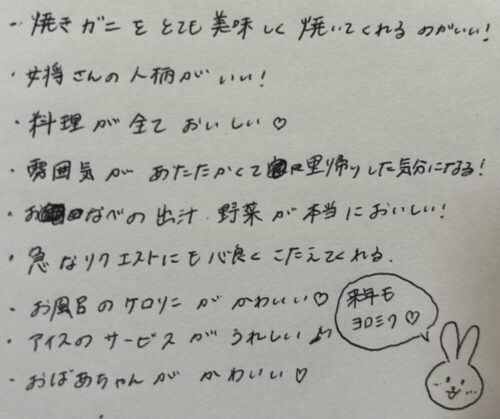 ・焼きガニをとても美味しく焼いてくれるのがいい!
・女将さんの人柄がいい!
・料理が全ておいしい♡
・雰囲気があたたかくて里帰りした気分になる!
・おなべの出汁、野菜が本当においしい!
・急なリクエストにも心良くこたえてくれる.
・お風呂のケロリンがかわいい♡
・アイスのサービスがうれしい♪
・おばあちゃんがかわいい♡
来年も
ヨロシク♡